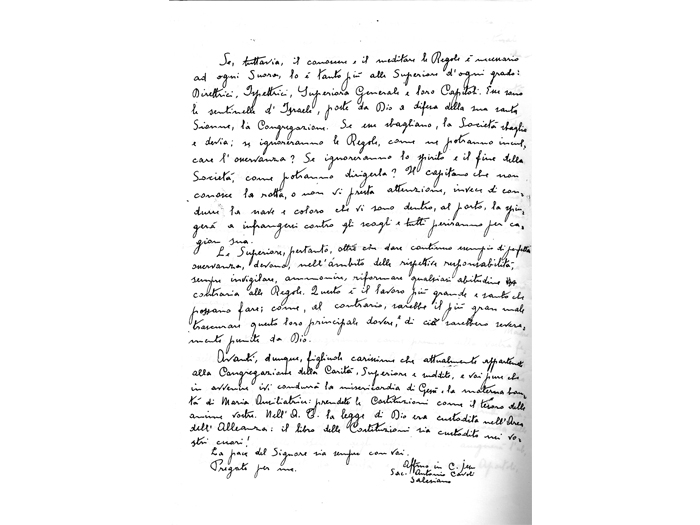 Se, tuttavia, il conoscere e il meditare le Regole è necessario
ad ogni Suora, lo è tanto più alle Superiore d'ogni grado:
Direttrici, Ispettrici, Superiora Generale e loro Capitoli. Esse sono
le sentinelle d'Israele, poste da Dio a difesa della sua santa
Sionne, la Congregazione. Se esse sbagliano, la Società sbaglia
e devia; se ignoreranno le Regole, come ne potranno incul,
care l'osservanza? Se ignoreranno lo spirito e il fine della
Società, come potranno dirigerla? Il capitano che non
conosce la rotta, o non vi presta attenzione, invece di con,
durre la nave e coloro che vi sono dentro, al porto, la spin,
gerà a infrangersi contro gli scogli e tutti periranno per ca,
gion sua.
Le Superiore, pertanto, oltre che dare continuo esempio di perfetta
osservanza, devono, nell'ámbito delle rispettive responsabilità,
sempre invigilare, ammonire, riformare qualsiasi abitudine
contraria alle Regole. Questo è il lavoro più grande e santo che
possano fare; come, al contrario, sarebbe il più gran male
trascurare questo loro principale dovere, e di ciò sarebbero severa,
mente punite da Dio.
Avanti, dunque, figliuole carissime che attualmente appartenete
alla Congregazione della Carità, Superiore e suddite, e voi pure che
in avvenire ivi condurrà la misericordia di Gesù, la materna bon,
tà di Maria Ausiliatrice: prendete le Costituzioni come il tesoro delle
anime vostre. Nell'A. T. la legge di Dio era custodita nell'Arca
dell'Alleanza: il libro delle Costituzioni sia custodito nei vo,
stri cuori!
La pace del Signore sia sempre con voi.
Pregate per me.
Affmo in C. Jesu
Sac. Antonio Cavoli
Salesiano